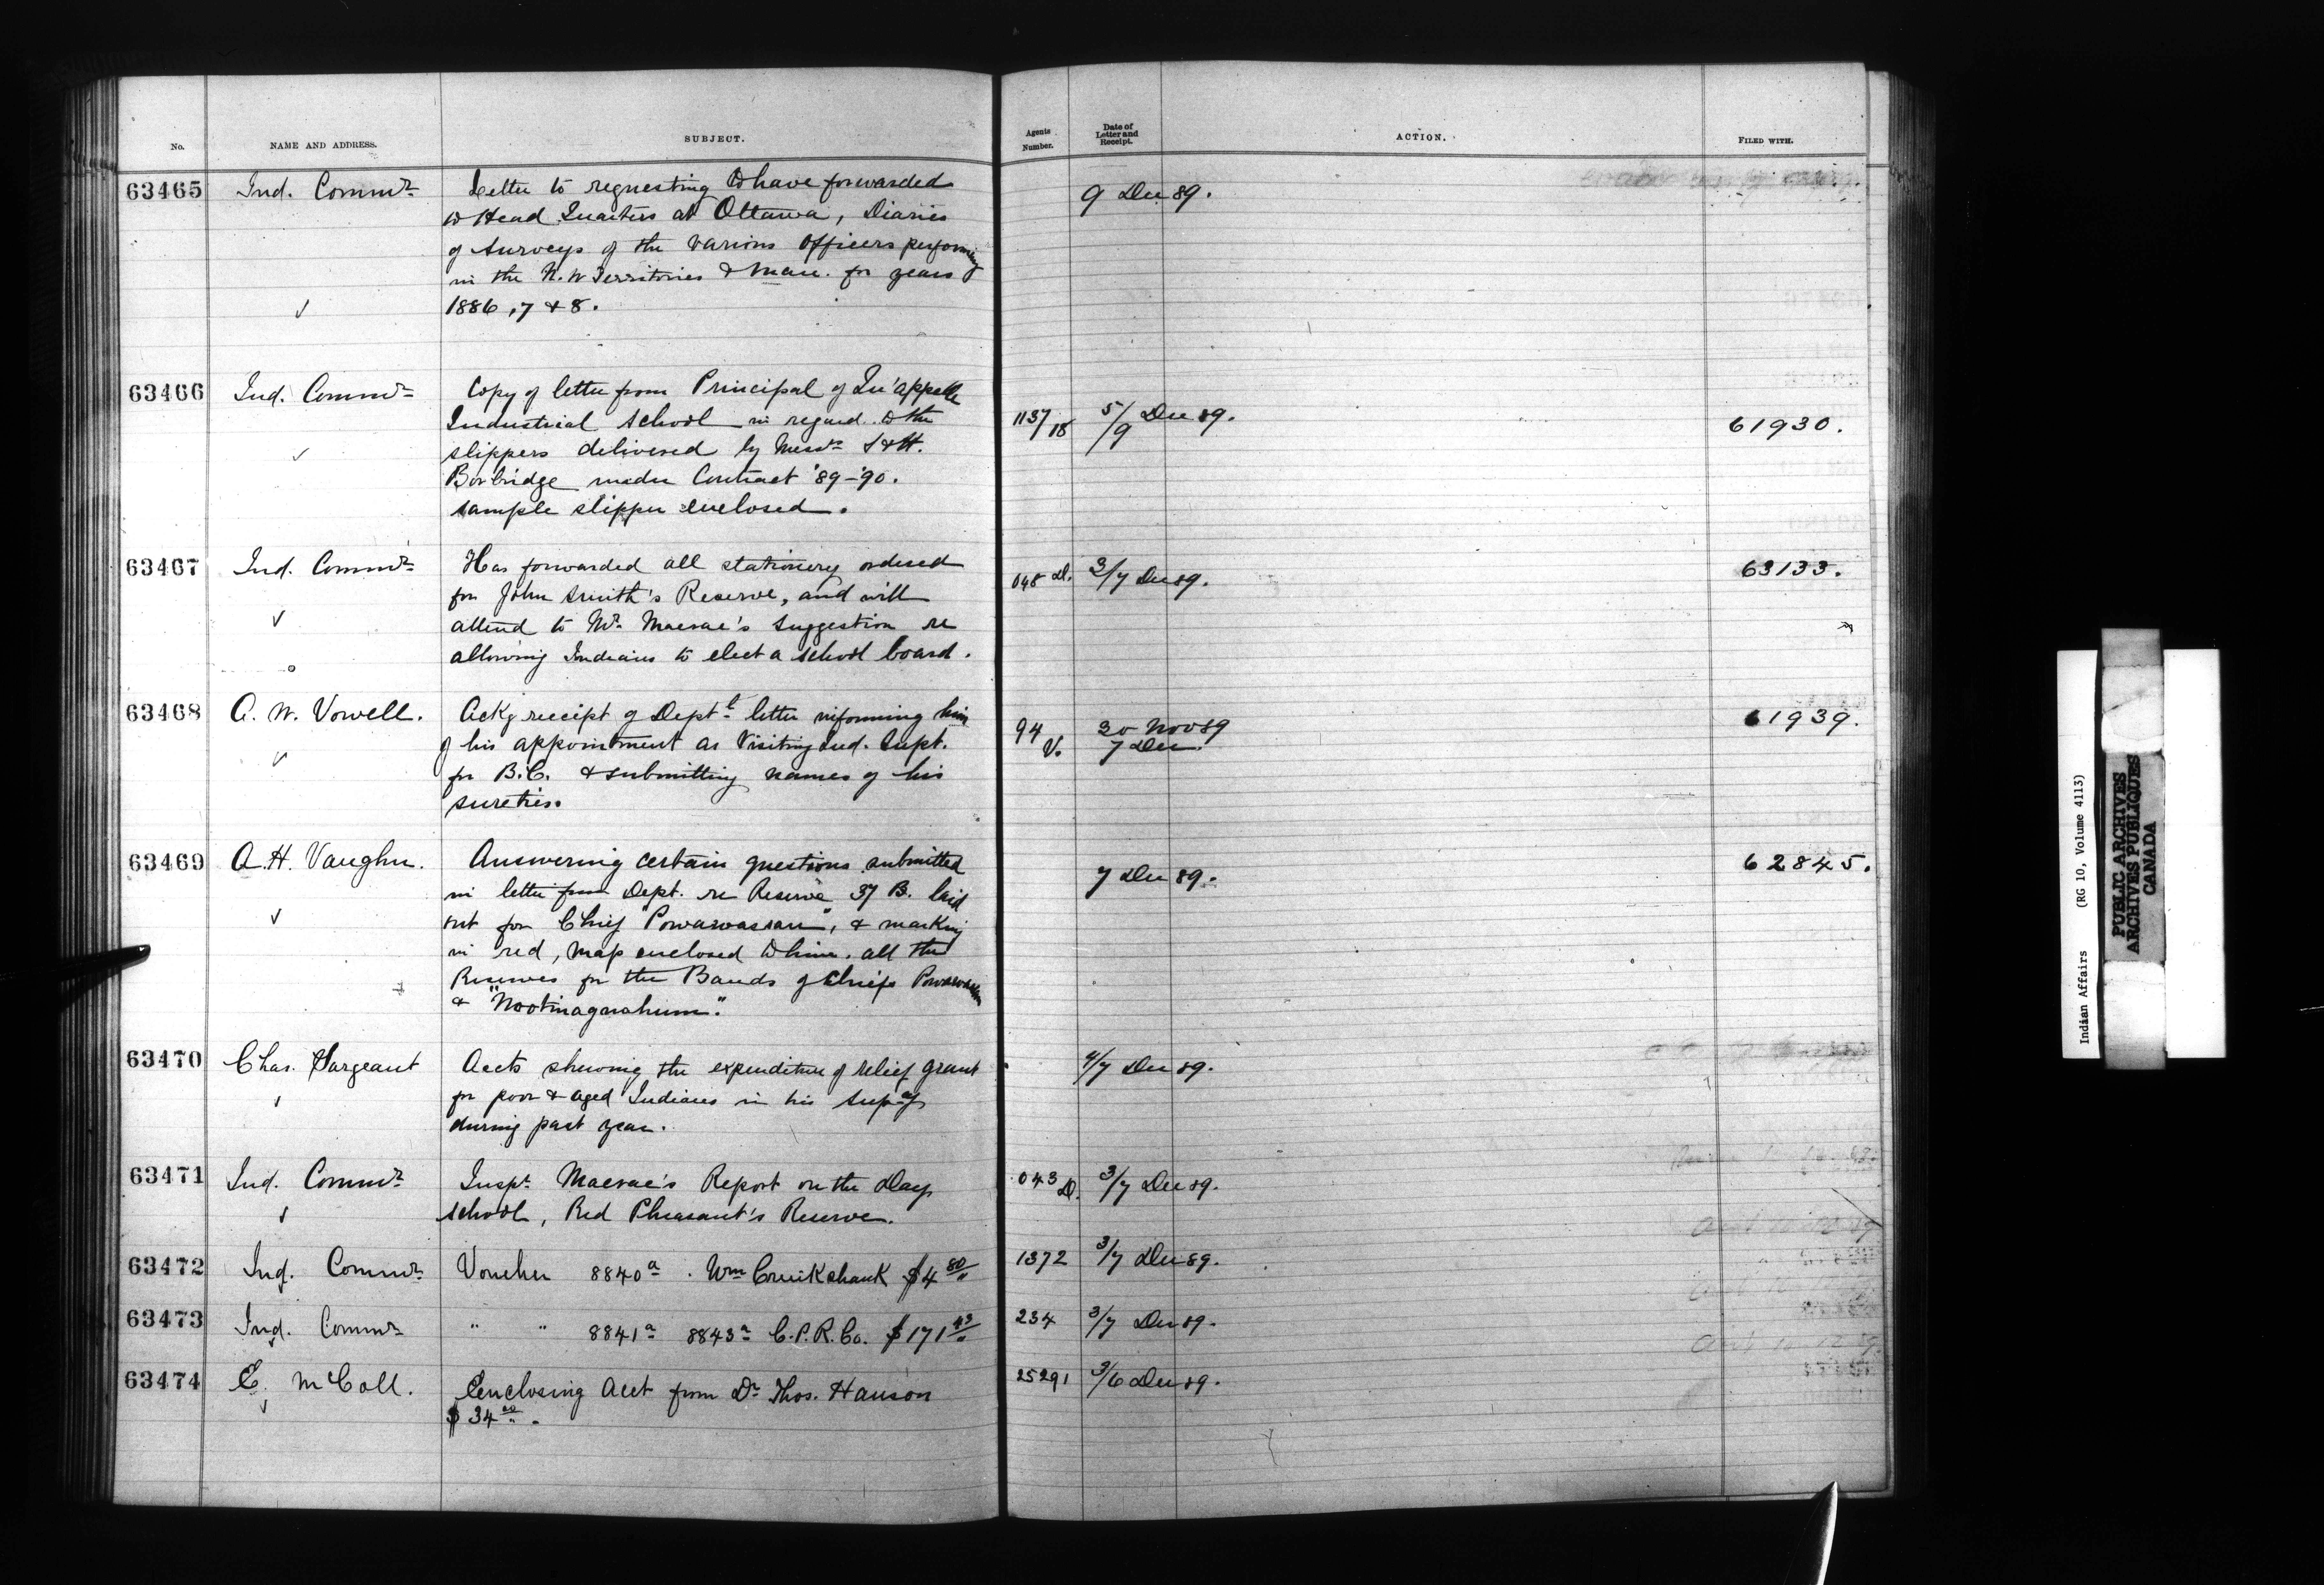 No.
NAME AND ADDRESS.
SUBJECT.
Agents Number.
Date of Letter and Receipt.
ACTION.
FILED WITH.
63465 Ind. Commr
Letter to requesting to have forwarded
to Head Quarters at Ottawa, Diaries
of surveys of the various Officers performing
in the N.W Territories & Man. for years
1886, 7 & 8.
9 Dec 89.
63466 Ind. Commr
Copy of letter from Principal of Qu'appelle
Industrial School in regard to the
slippers delivered by Messrs S & H.
Borbridge under Contract '89-'90.
sample slipper enclosed.
1137/18 5/9 Dec 89. 61930.
63467 Ind. Commr
Has forwarded all stationery ordered
for John Smith's Reserve, and will
attend to Mr. Macrae's suggestion re
allowing Indians to elect a school board.
048 D. 3/7 Dec 89. 63133.
63468 A. W. Vowell.
Ackg receipt of Deptl letter informing him
of his appointment as Visiting Ind. Supt.
for B.C. & submitting names of his
sureties.
94 V. 30 Nov 89
7 Dec. 61939.
63469 A. H. Vaughn.
Answering certain questions submitted
in letter from Dept. re Reserve 37 B. laid
out for Chief "Powawassan", & marking
in red, map enclosed to him. all the
Reserves for the Bands of Chiefs Powawassan
& "Nootinaquahum".
7 Dec 89. 62845.
63470 Chas. Sargeant
Accts shewing the expenditure of relief grant
for poor & aged Indians in his Supcy
during past year.
4/7 Dec 89.
63471 Ind. Commr
Inspr. Macrae's Report on the Day
school, Red Pheasant's Reserve.
043 D. 3/7 Dec 89.
63472 Ind. Commr
Voucher 8840a. Wm Cruikshank $4 80/"
1372 3/7 Dec 89.
63473 Ind. Commr
" " 8841a 8843a C.P.R. Co. $171 43/"
234 3/7 Dec 89.
63474 E. McColl.
Enclosing Acct from Dr Thos. Hanson
$34.00.
25291 3/6 Dec 89.
Indian Affairs (RG 10, Volume 4113)
PUBLIC ARCHIVES
ARCHIVES PUBLIQUES
CANADA